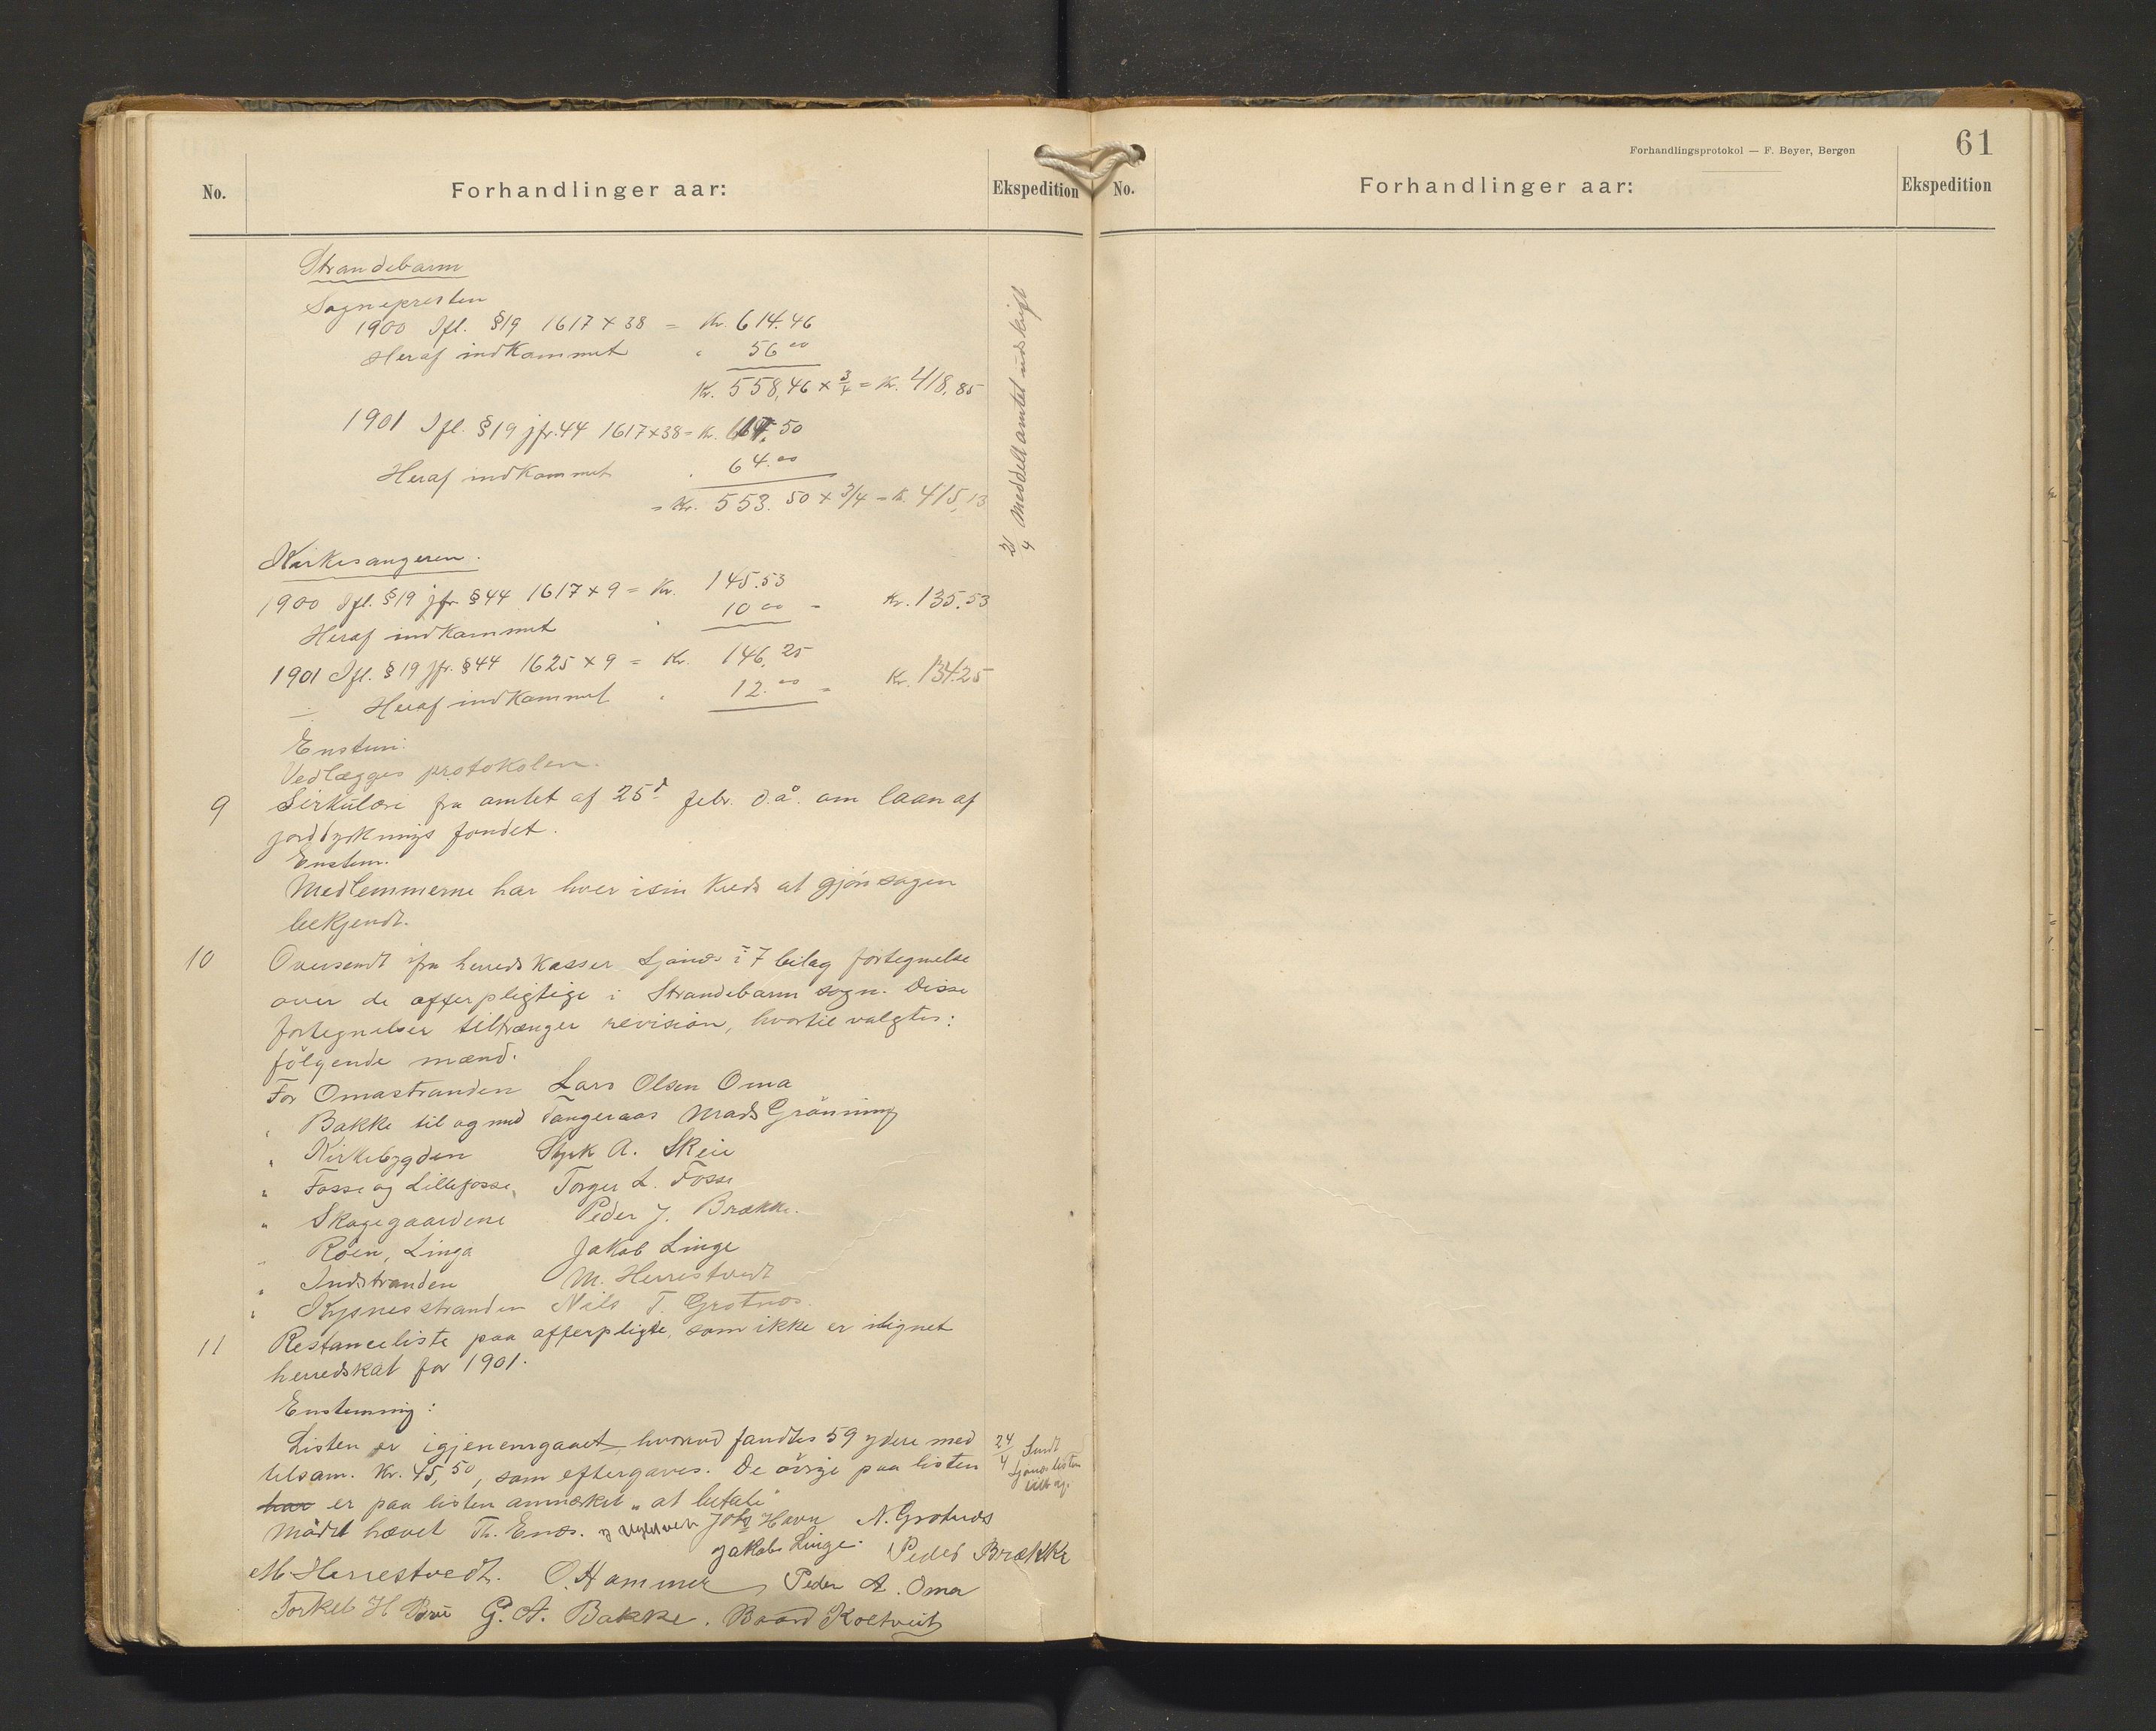 No.
Forhandlinger aar:
Ekspedition
Strandebarm
Sognepresten
1900 Ifl. §19 1617 × 38 = Kr. 614.46
Heraf indkommet " 56 00
Kr. 558,46 × 3/4 = Kr. 418,85
1901 Ifl. §19 jfr. 44 1617×38 = Kr. 617,50
Heraf indkommet " 64.00
= Kr. 553.50 × 3/4 = Kr. 415,13
21/4 Meddelt amtet udskrift
Kirkesangeren.
1900 Ifl. §19 jfr. §44 1617 × 9 = Kr. 145.53
Heraf indkommet " 10 00 = Kr. 135.53
1901 Ifl. §19 jfr. §44 1625 × 9 = Kr. 146,25
÷ Heraf indkommet " 12.00 = Kr. 134.25
Enstem:
Vedlægges protokolen.
9 Sirkulære fra amtet af 25d. febr. d.å. om laan af
jorddyrknings fondet.
Enstem.
Medlemmerne har hver i sin kreds at gjöre sagen
bekjendt.
10 Oversendt fra herredskasser Ljones i 7 bilag fortegnelse
over de offerpligtige i Strandebarm sogn. Disse
fortegnelser tiltrænger revision, hvortil valgtes:
fölgende mænd.
For Omastranden Lars Olsen Oma
" Bakke til og med Tangeraas Mads Grönning
" Kirkebygden Styrk A. Skeie
" Fosse og Lillefosse Torger L. Fosse
" Skogegaardene Peder J. Brække.
" Röen, Linga Jakob Linge
" Indstranden M. Herrestvedt
" Kysnesstranden Nils T. Grotnes.
11 Restanceliste paa offerpligte, som ikke er ilignet
herredskat for 1901.
Enstemmig:
Listen er igjenemgaaet hvorved fandtes 59 ydere med
tilsam. Kr. 45,50, som eftergaves. De övrige paa listen
har er paa listen anmærket "at betale"
24/4 Sendt
Ljones listen
Mödet hævet Th. Enes. Johs Havn N. Grotnes
Jakob Linge. Peder Brække
M. Herrestvedt. O. Hammer Peder A. Oma
Torkel H Brue G. A. Bakke. Baard Koltveit
61
Forhandlingsprotokol — F. Beyer, Bergen
No.
Forhandlinger aar:
Ekspedition